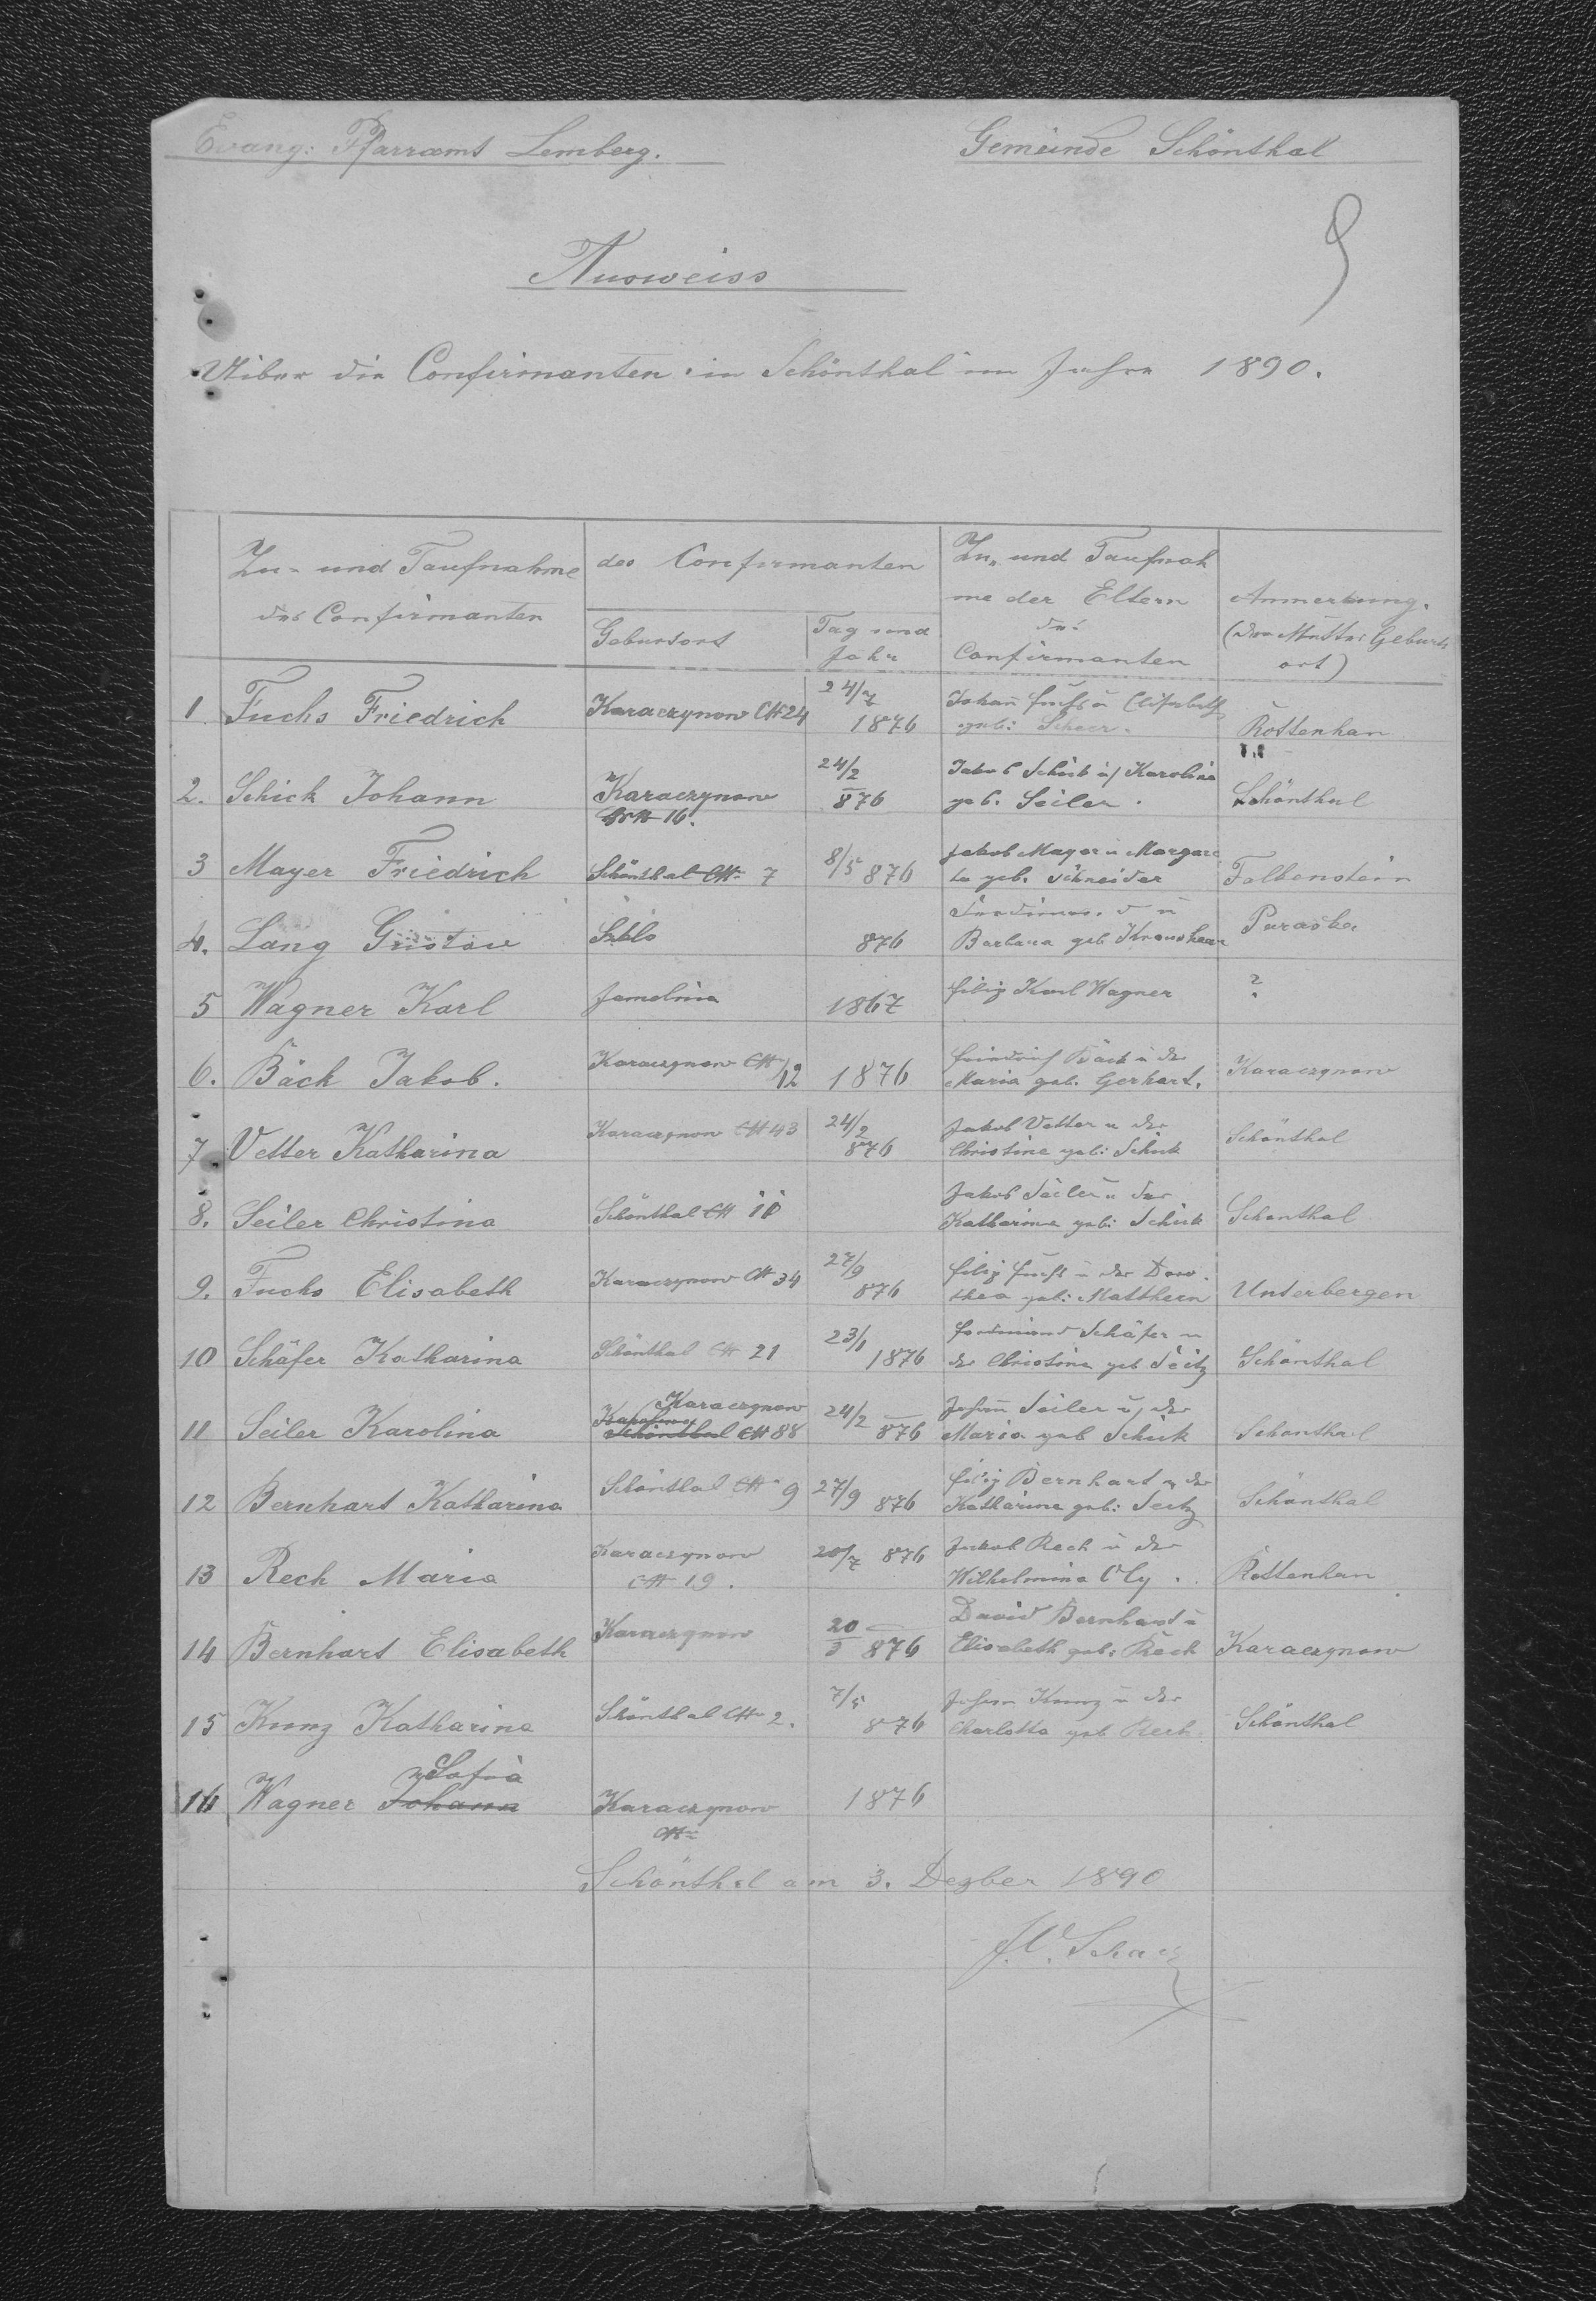 Evang: Pfarramt Lemberg.
Gemeinde Schönthal
9
Ausweiss
Uiber die Confirmanten in Schönthal im Jahre 1890.
Zu- und Taufnahme
des Confirmanten
des Confirmanten
Geburtsort
Tag und
Jahr
Zu- und Taufnah
me der Eltern
des
Confirmanten
Anmerkung.
(der Mutter Geburts
ort)
1 Fuchs Friedrich Karaczynow № 24 24/7 1876 Johann Fuchs u Elisabeth geb: Scheer. Rottenhan
2. Schick Johann Karaczynow № 16. 24/2 876 Jakob Schick u Karolina geb. Seiler. Schönthal
3 Mayer Friedrich Schönthal № 7 8/5 876 Jakob Mayer u Margare ta geb. Schneider Falkenstein
4. Lang Gustav 876 u Barbara geb Kraushaar
5 Wagner Karl Jamelnia 1867 Filip Karl Wagner ?
6. Bäck Jakob. Karaczynow № 12 1876 Friedrich Bäck u der Maria geb. Gerhart. Karaczynow
7 Vetter Katharina Karaczynow № 43 24/2 876 Jakob Vetter u der Christine geb: Schick Schönthal
8. Seiler Christina Schönthal № 11 Jakob Seiler u der Katharina geb: Schick Schönthal
9. Fuchs Elisabeth Karaczynow № 34 27/9 876 Filip Fuchs u der Doro thea geb: Matthern Unterbergen
10 Schäfer Katharina Schönthal № 21 23/1 1876 Ferdinand Schäfer u der Christina geb Seitz Schönthal
11 Seiler Karolina Karaczynow Schönthal № 88 24/2 876 Johann Seiler u der Maria geb Schick Schönthal
12 Bernhart Katharina Schönthal № 9 27/9 876 Filip Bernhart u der Katharina geb: Seitz Schönthal
13 Rech Maria Karaczynow № 19. 20/7 876 Jakob Rech u der Wilhelmina Oly. Rottenhan
14 Bernhart Elisabeth Karaczynow 20/3 876 David Bernhard u Elisabeth geb: Rech Karaczynow
15 Kunz Katharina Schönthal № 2. 7/5 876 Johann Kunz u der Charlotta geb Rech Schönthal
16 Wagner Johann Sofia Karaczynow № 1876
Schönthal am 3. Dezber 1890